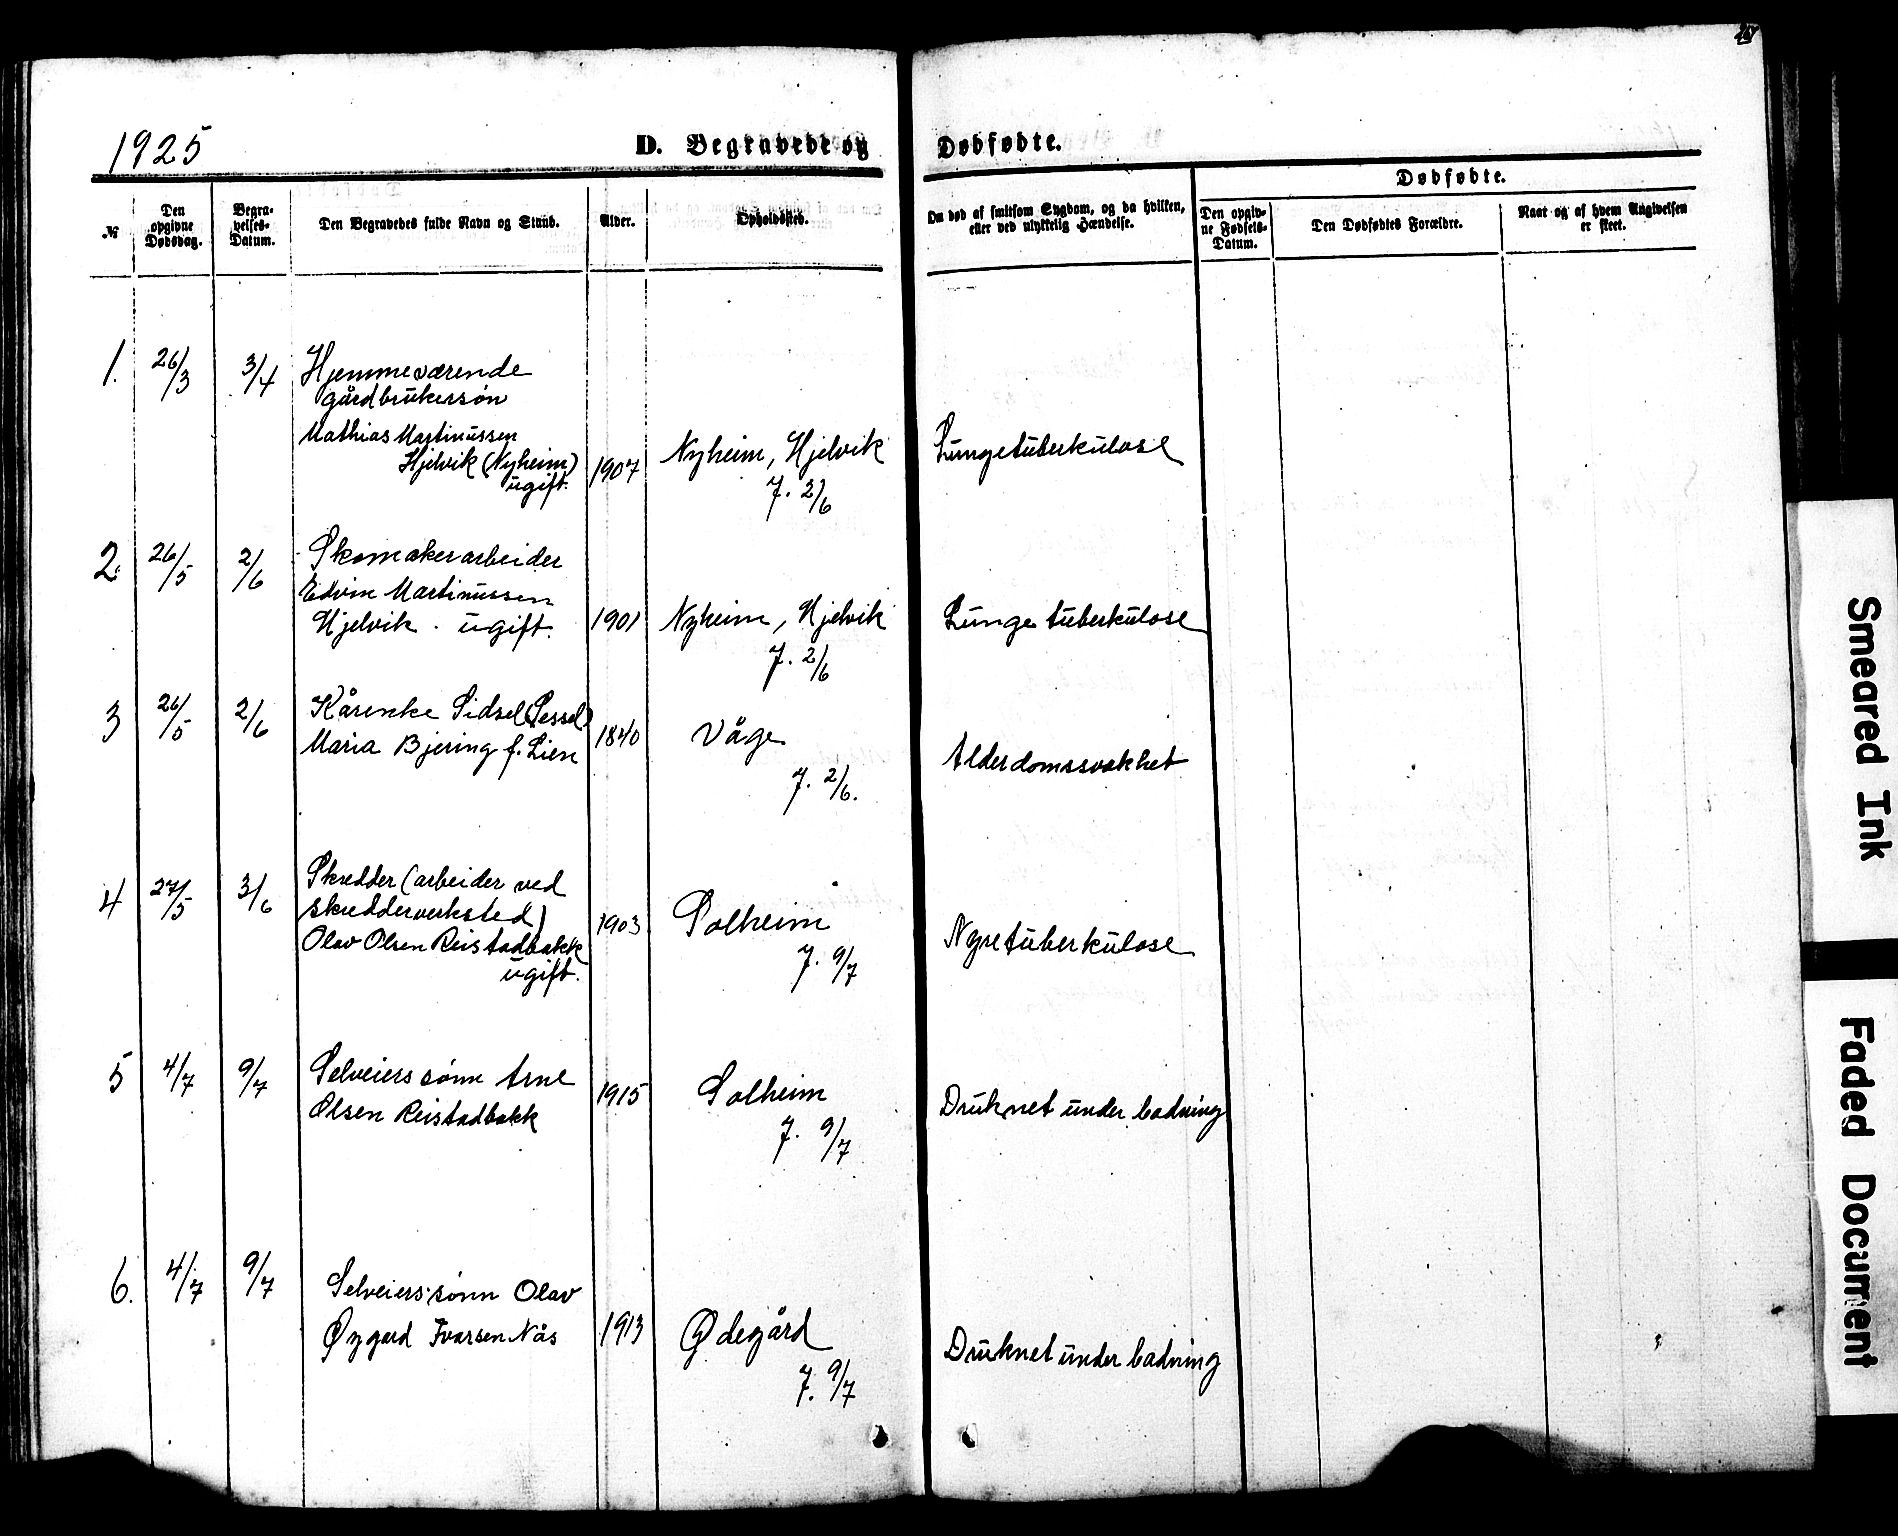 1925
D. Begravede og Dødfødte.
№
Den opgivne Dødsdag.
Begravelses-Datum.
Den Begravedes fulde Navn og Stand.
Alder.
Opholdssted.
Om død af smitsom Sygdom, og da hvilken, eller ved ulykkelig Hændelse.
Dødfødte.
Den opgivne Fødsels-Datum.
Den Dødfødtes Forældre.
Naar og af hvem Angivelsen er skeet.
1. 26/3 3/4 Hjemmeværende
gårdbrukersøn
Mathias Martinussen
Hjelvik (Nyheim) 1907 Nyheim, Hjelvik Lungetuberkulose
ugift. J. 2/6
2. 26/5 2/6 Skomakerarbeider
Edvin Martinussen
Hjelvik. ugift. 1901 Nyheim, Hjelvik Lungetuberkulose
J. 2/6
3 26/5 2/6 Kårenke Sidsel (Sessel)
Maria Bjering f. Lien 1840 Våge Alderdomssvakhet
J. 2/6.
4 27/5 3/6 Skredder (arbeider ved
skredderverksted)
Olav Olsen Reistadbakk 1903 Solheim Nyretuberkulose
ugift. J. 9/7
5 4/7 9/7 Selveierssønn Arne
Olsen Reistadbakk 1915 Solheim Druknet under badning
J. 9/7
6. 4/7 9/7 Selveierssønn Olav
Øygard Ivarsen Nås 1913 Ødegård Druknet under badning
J. 9/7
Smeared Ink
Faded Document